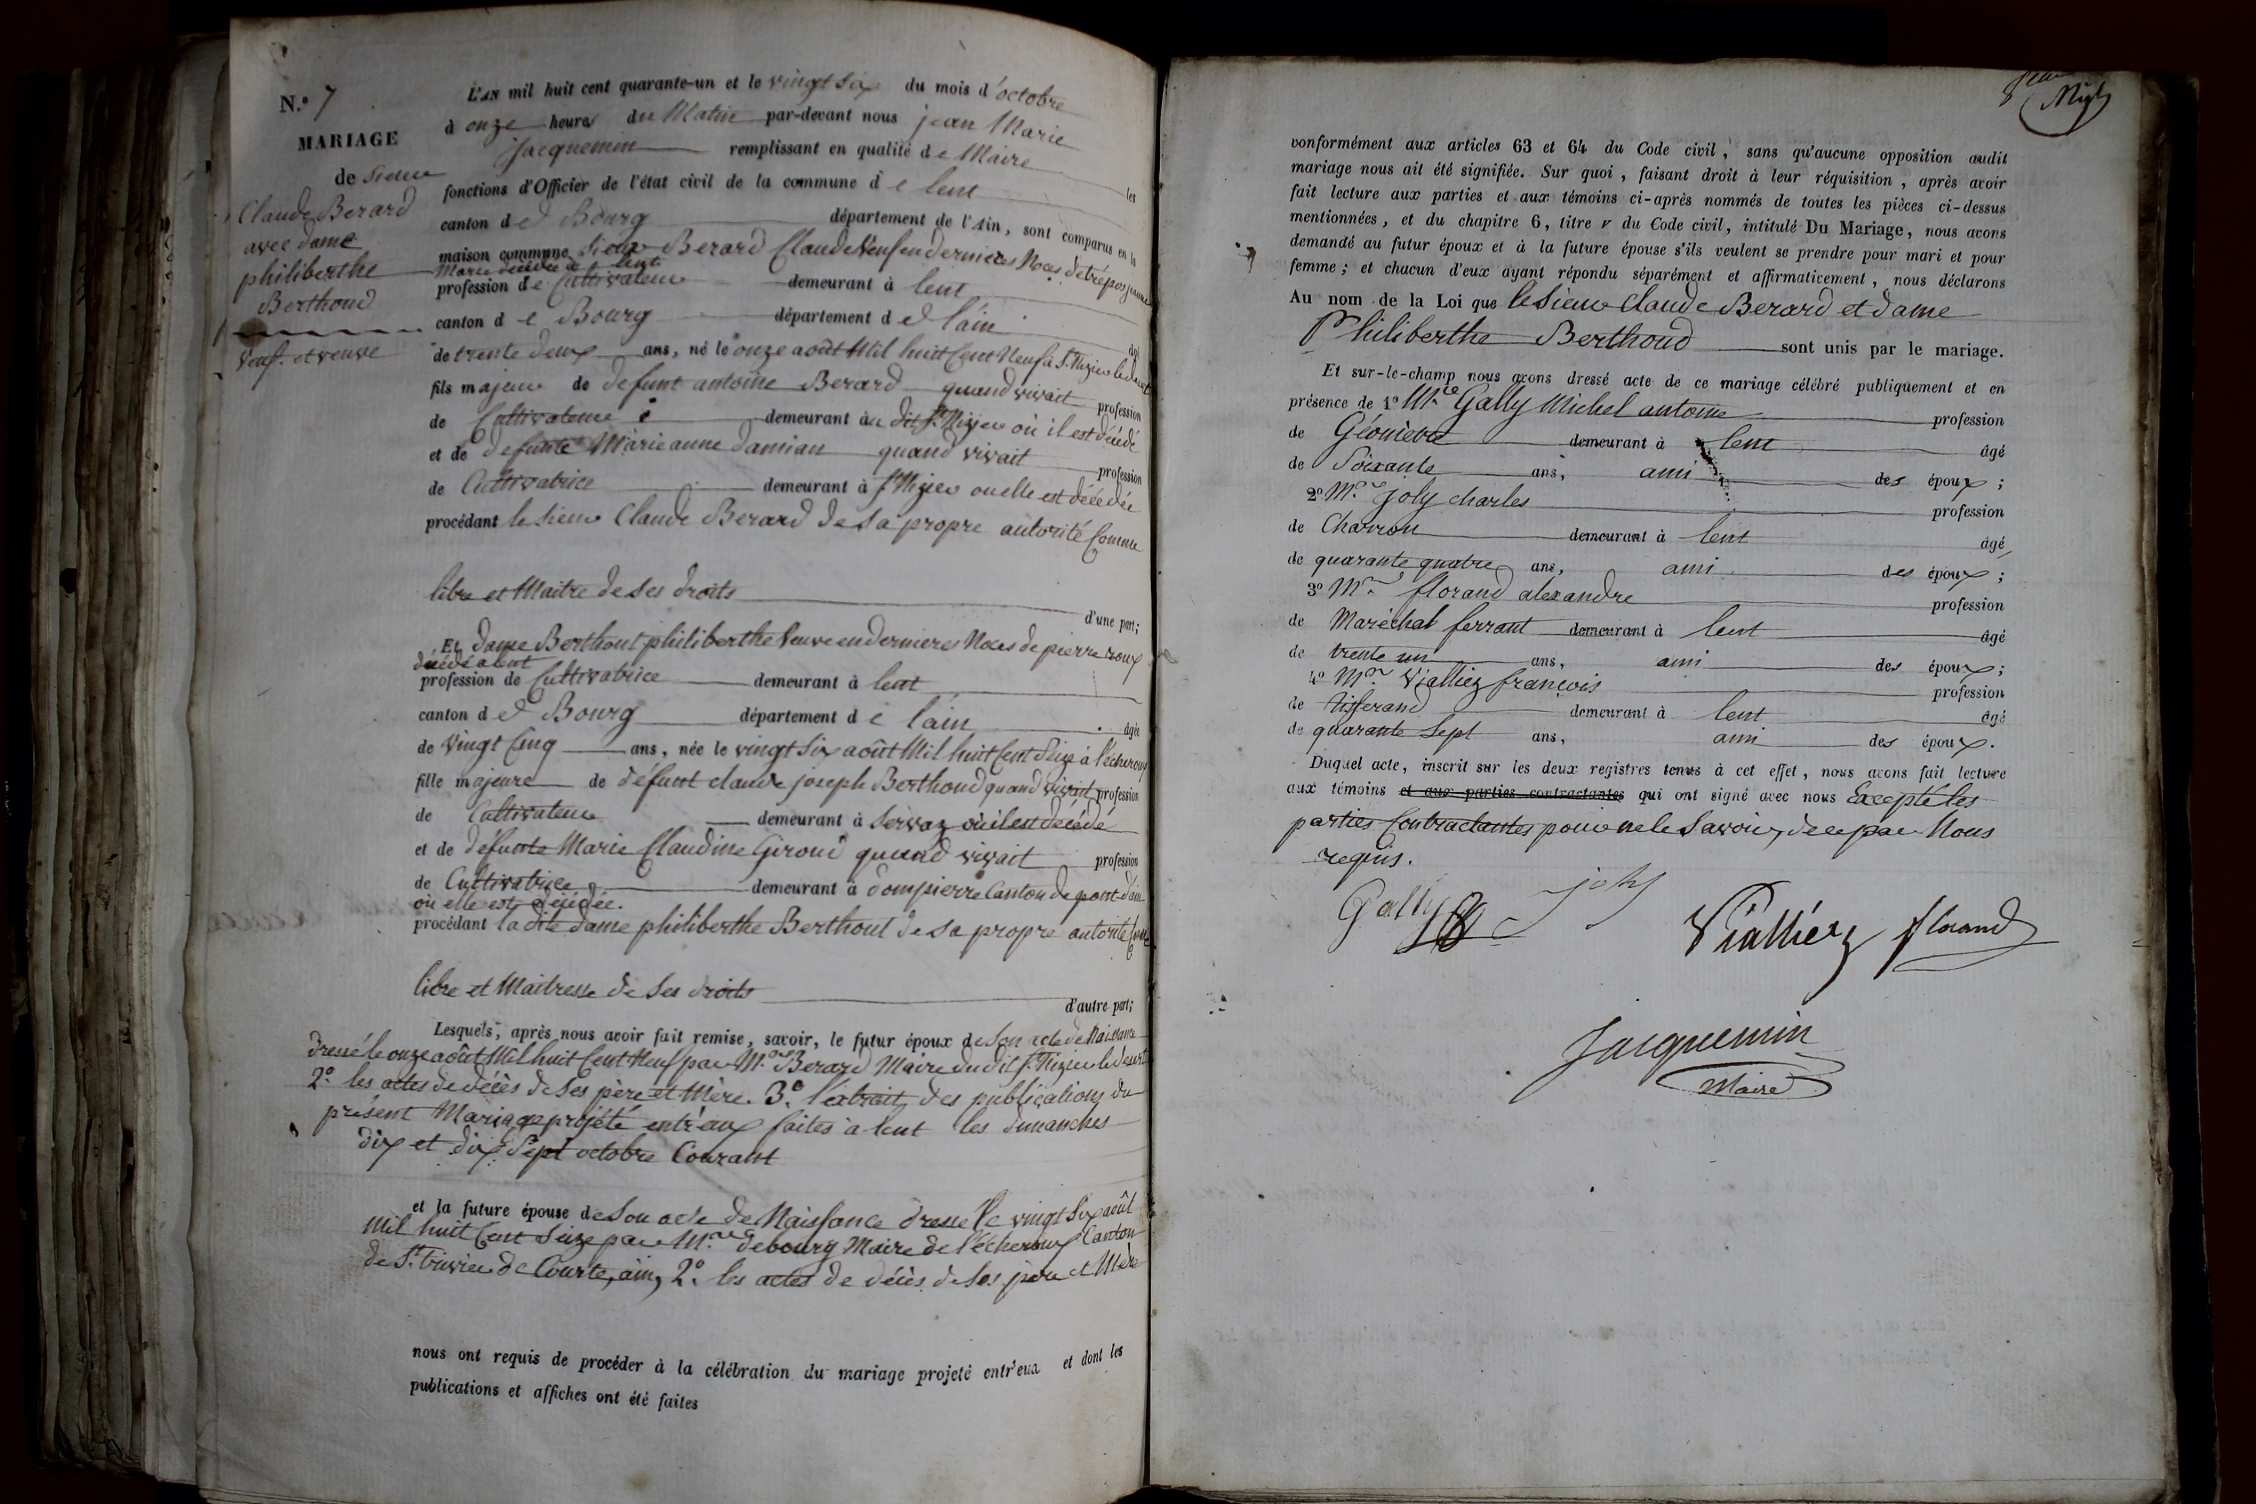 N.° 7
MARIAGE
de Sieur
Claude Berard
avec dame
philiberthe
Berthoud
Veuf et veuve
L'AN mil huit cent quarante-un et le vingt six du mois d'octobre
à onze heures du Matin par-devant nous jean Marie
Jacquemin remplissant en qualité de Maire les
fonctions d'Officier de l'état civil de la commune de lent
canton de Bourg département de l'Ain, sont comparus en la
maison commune Sieur Berard Claude Veuf en dernieres Noces de trépos jeanne
Marie décédée à lent
profession de Cultivateur demeurant à lent
canton de Bourg département de l'ain âgé
de trente deux ans, né le onze août Mil huit Cent Neuf à St. Nizier le desert
fils majeur de defunt antoine Berard quand vivait profession
de Cultivateur demeurant au dit St. Nizier où il est décédé
et de defunte Marie anne Damian quand vivait profession
de Cultivatrice demeurant à St Nizier ou elle est décédée
procédant le sieur Claude Berard de sa propre autorité Comme
libre et Maitre de ses droits
d'une part;
Et dame Berthout philiberthe Veuve en dernieres Noces de pierre roux
décédé a lent
profession de Cultivatrice demeurant à lent
canton de Bourg département de l'ain âgée
de Vingt Cinq ans, née le vingt Six août Mil huit Cent Seize à l'écheroux
fille majeure de défunt claude joseph Berthoud quand vivait profession
de Cultivateur demeurant à Servaz où il est décédé
et de défunte Marie Claudine Giroud quand vivait profession
de Cultivatrice demeurant à dompierre Canton de pont d'ain
où elle est décédée.
procédant la dite dame philiberthe Berthout de sa propre autorité Comme
libre et Maitresse de Ses droits
d'autre part;
Lesquels, après nous avoir fait remise, savoir, le futur époux de Son acte de Naissance
dressé le onze août Mil huit Cent Neuf par Mr. Berard Maire du dit St. Nizier le desert
2.° les actes de décès de Ses père et Mère. 3.° l'extrait des publications du
présent Mariage projété entr'eux faites à lent les dimanches
dix et dix Sept octobre Courant
et la future épouse de Son acte de Naissance dressé le vingt Six août
Mil huit Cent Seize par Mr. debourg Maire de l'écheroux Canton
de St. trivier de Courte, ain, 2.° les actes de décès de Ses père et Mère
nous ont requis de procéder à la célébration du mariage projeté entr'eux et dont les
publications et affiches ont été faites
conformément aux articles 63 et 64 du Code civil, sans qu'aucune opposition audit
mariage nous ait été signifiée. Sur quoi, faisant droit à leur réquisition, après avoir
fait lecture aux parties et aux témoins ci-après nommés de toutes les pièces ci-dessus
mentionnées, et du chapitre 6, titre v du Code civil, intitulé Du Mariage, nous avons
demandé au futur époux et à la future épouse s'ils veulent se prendre pour mari et pour
femme; et chacun d'eux ayant répondu séparément et affirmativement, nous déclarons
Au nom de la Loi que le Sieur Claude Berard et dame
Philiberthe Berthoud sont unis par le mariage.
Et sur-le-champ nous avons dressé acte de ce mariage célébré publiquement et en
présence de 1° Mr. Gally Michel antoine profession
de Géomètre demeurant à lent âgé
de Soixante ans, ami des époux;
2° Mr. Joly charles profession
de Charron demeurant à lent âgé
de quarante quatre ans, ami des époux;
3° Mr. florand alexandre profession
de Maréchal ferrant demeurant à lent âgé
de trente un ans, ami des époux;
4° Mr. Vialliez françois profession
de tisserand demeurant à lent âgé
de quarante Sept ans, ami des époux.
Duquel acte, inscrit sur les deux registres tenus à cet effet, nous avons fait lecture
aux témoins et aux parties contractantes qui ont signé avec nous Excepté les
parties Contractantes pour ne le Savoir, de ce par Nous
requis.
Gally joly Vialliéz florand
Jacquemin
Maire